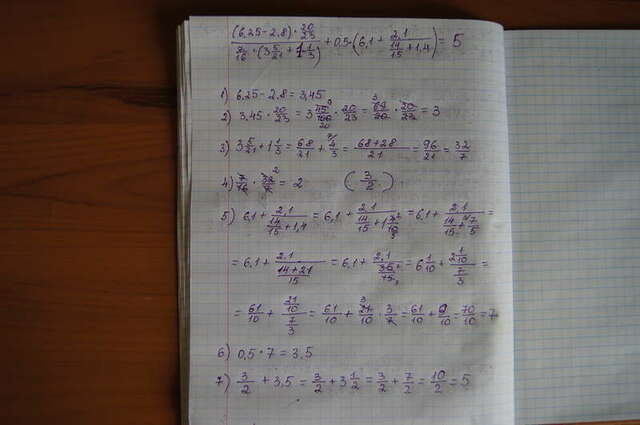 (6,25-2,8)·20/23 / 7/16·(3 5/21+1 1/3) + 0,5·(6,1+ 2,1 / 14/15+1,4) = 5
1) 6,25-2,8=3,45
2) 3,45·20/23=3 45/100·20/23=69/20·20/23=3
3) 3 5/21+1 1/3=68/21+4/3=68+28/21=96/21=32/7
4) 7/16·32/7=2 (3/2)
5) 6,1+ 2,1 / 14/15+1,4 = 6,1+ 2,1 / 14/15+1 4/10 = 6,1+ 2,1 / 14/15+7/5 =
= 6,1+ 2,1 / 14+21/15 = 6,1+ 2,1 / 35/15 = 6 1/10+ 2 1/10 / 7/3 =
= 61/10 + 21/10 / 7/3 = 61/10+21/10·3/7=61/10+9/10=70/10=7
6) 0,5·7=3,5
7) 3/2+3,5=3/2+3 1/2=3/2+7/2=10/2=5